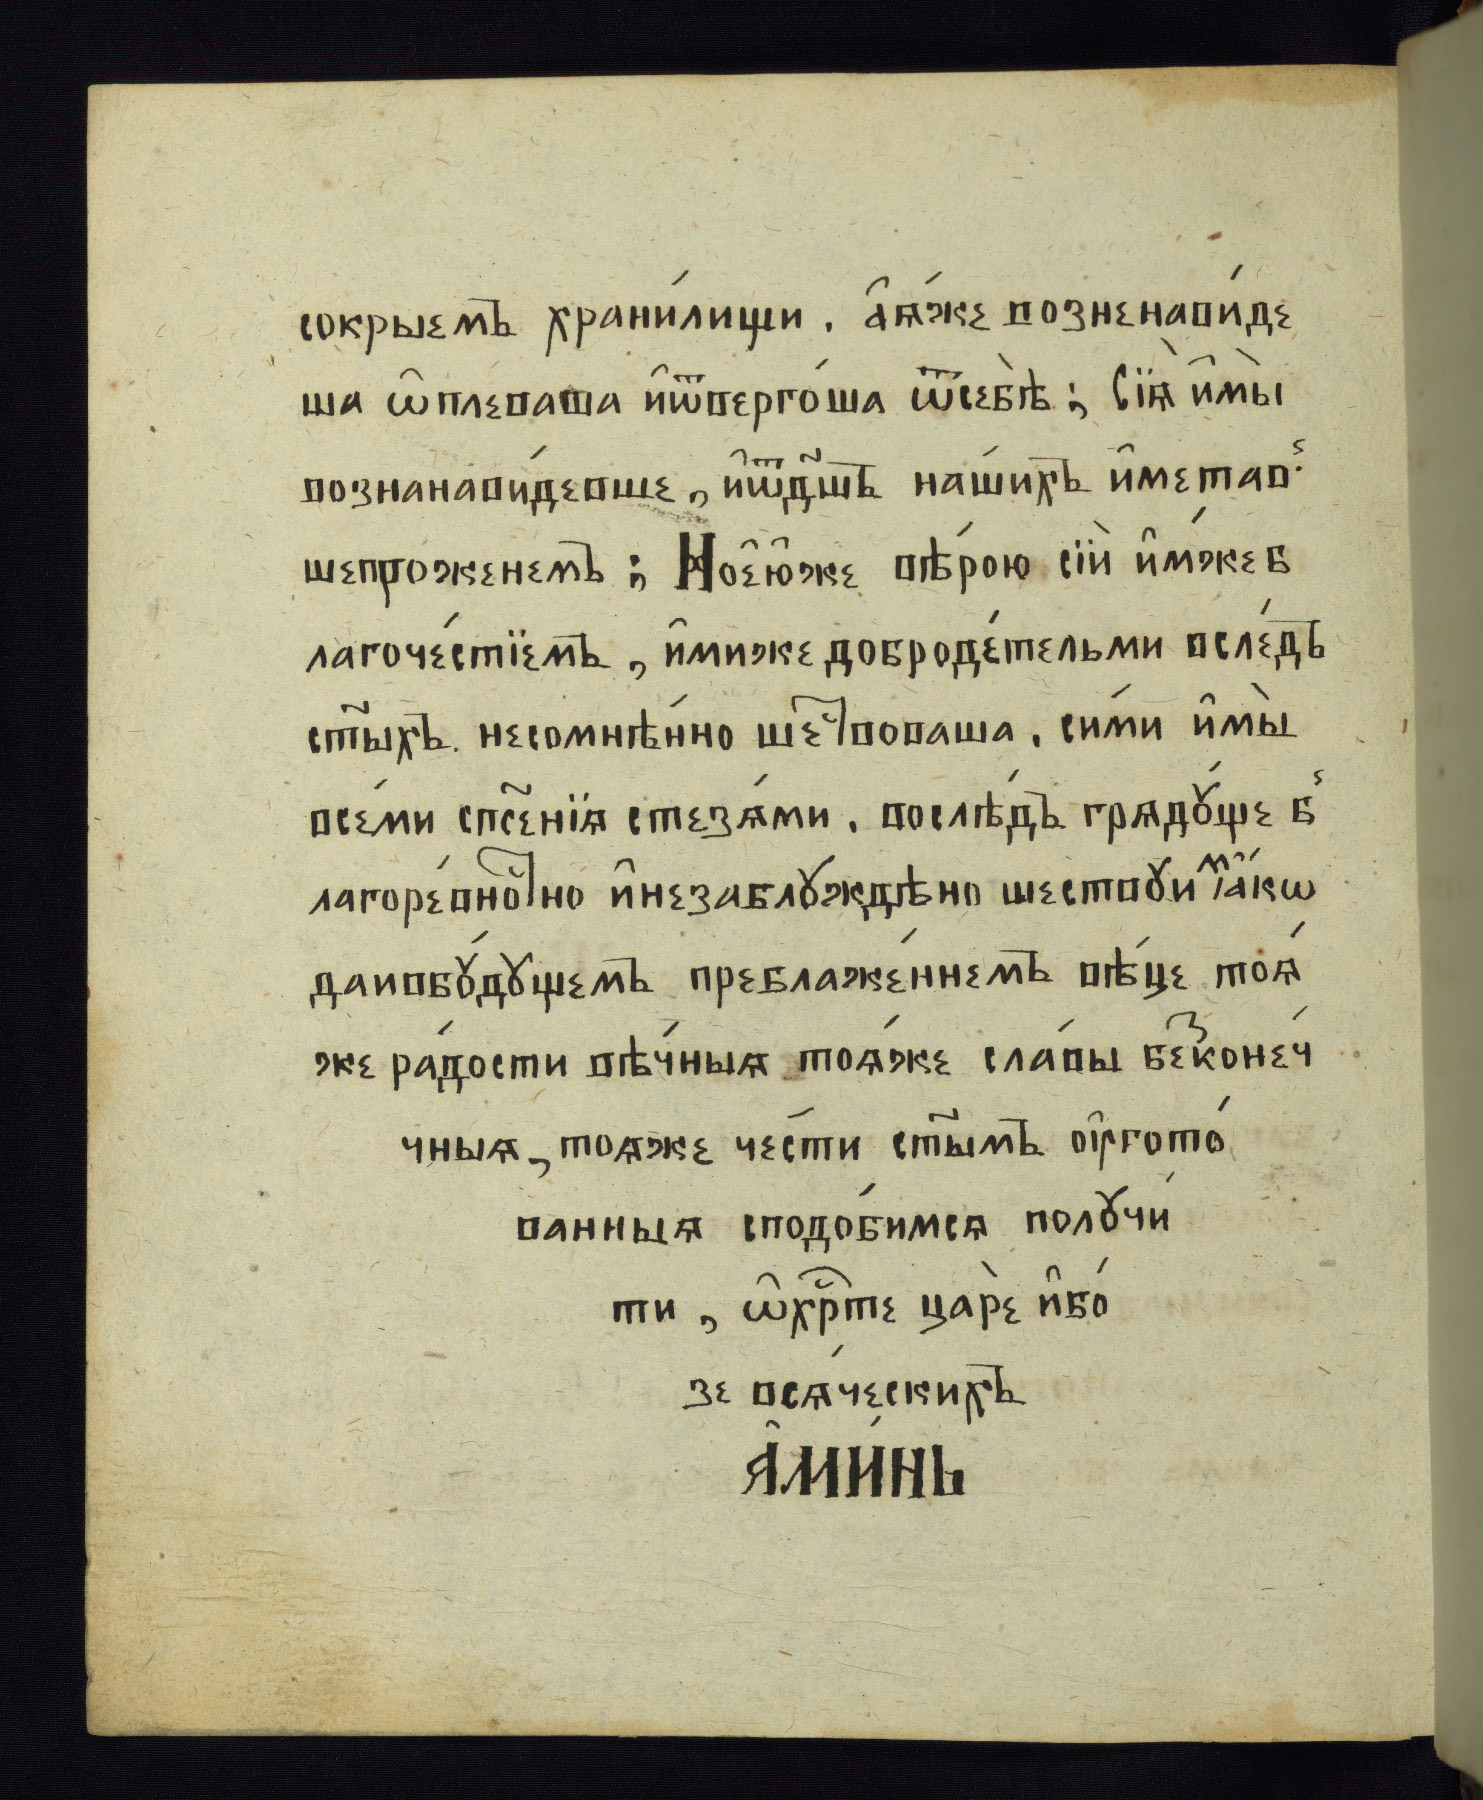 сокрыемъ храни́лищи . а҆ꙗ҆́же возненави́де
ша ѡ҆плеваша и҆ѿверго́ша ѿсебѣ̀ ; Сїѧ̀ и҆мы̀
вознанави́девше , и҆ѿдш҃ъ на́шихъ и҆метав
шепроженемъ ; Ноє҆ю҆́же вѣ́рою сїѝ и҆́мжеб
лагоче́стїемъ , и҆миже доброде́тельми всле́дъ
ст҃ыхъ . несомнѣ́нно шеⷭ҇твоваша . си́ми и҆мы̀
все́ми сп҃сенїѧ стезѧ́ми . вослѣ́дъ грѧдꙋ́ще б
лагоре́вноⷭ҇тно и҆незаблꙋ́ждѣно шествꙋиⷨ ꙗ҆́кѡ
даивбꙋ́дꙋщемъ преблаже́ннемъ вѣ́це тоѧ́
же ра́дости вѣ́чныѧ тоѧ́же сла́вы беⷥконе́ч
чныѧ , тоѧже че́сти ст҃ымъ оу҆гото́
ванныѧ сподо́бимсѧ полꙋчи́
ти , ѡ҆хрⷭ҇те царѐ и҆бо́
зе всѧ́ческихъ
А҆МИ́НЬ